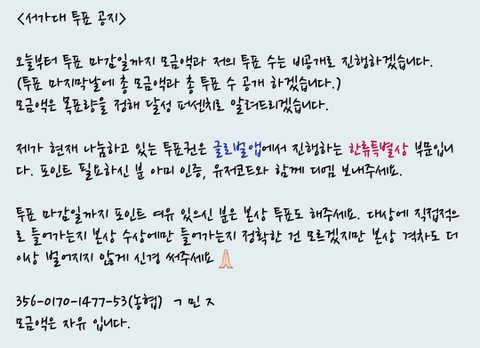 <서가대 투표 공지>
오늘부터 투표 마감일까지 모금액과 저의 투표 수는 비공개로 진행하겠습니다.
(투표 마지막날에 총 모금액과 총 투표 수 공개 하겠습니다.)
모금액은 목표량을 정해 달성 퍼센치로 알려드리겠습니다.
제가 현재 나눔하고 있는 투표권은 글로벌앱에서 진행하는 한류특별상 부문입니
다. 포인트 필요하신 분 아미 인증, 유저코드와 함께 디엠 보내주세요.
투표 마감일까지 포인트 여유 있으신 분은 본상 투표도 해주세요. 대상에 직접적으
로 들어가는지 본상 수상에만 들어가는지 정확한 건 모르겠지만 본상 격차도 더
이상 벌어지지 않게 신경 써주세요🙏🏻
356-0170-1477-53(농협) ㄱ민ㅈ
모금액은 자유 입니다.